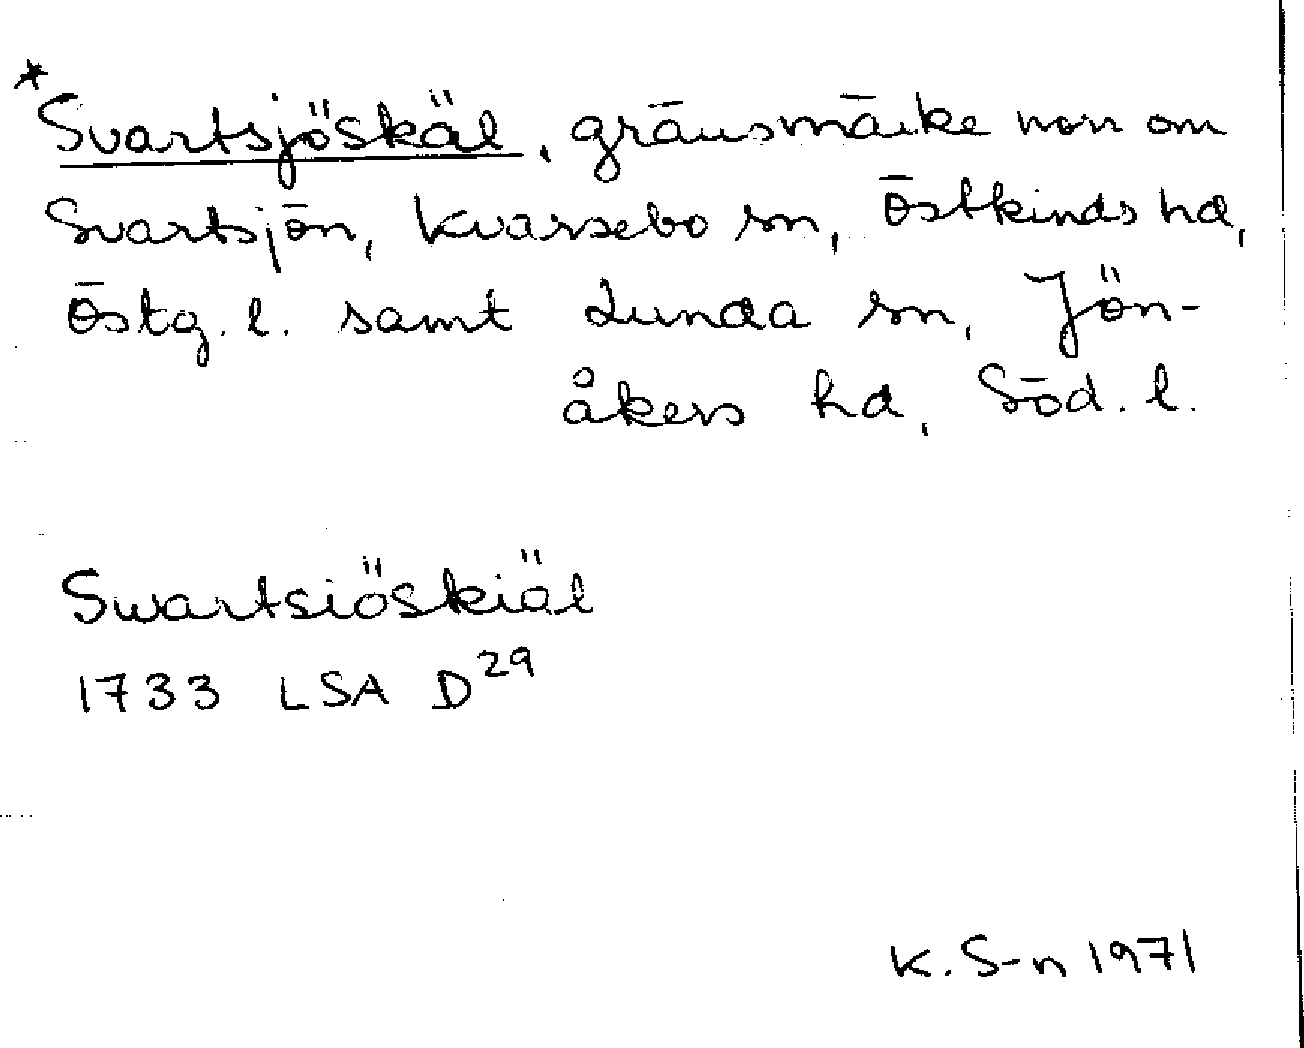 *Svartsjöskäl, gränsmärke norr om
Svartsjön, Kvarsebo sn, Östkinds hd,
Östg. l. samt Lunda sn, Jön-
åkers hd, Söd. l.
Swartsiöskiäl
1733 LSA D29
K. S-n 1971